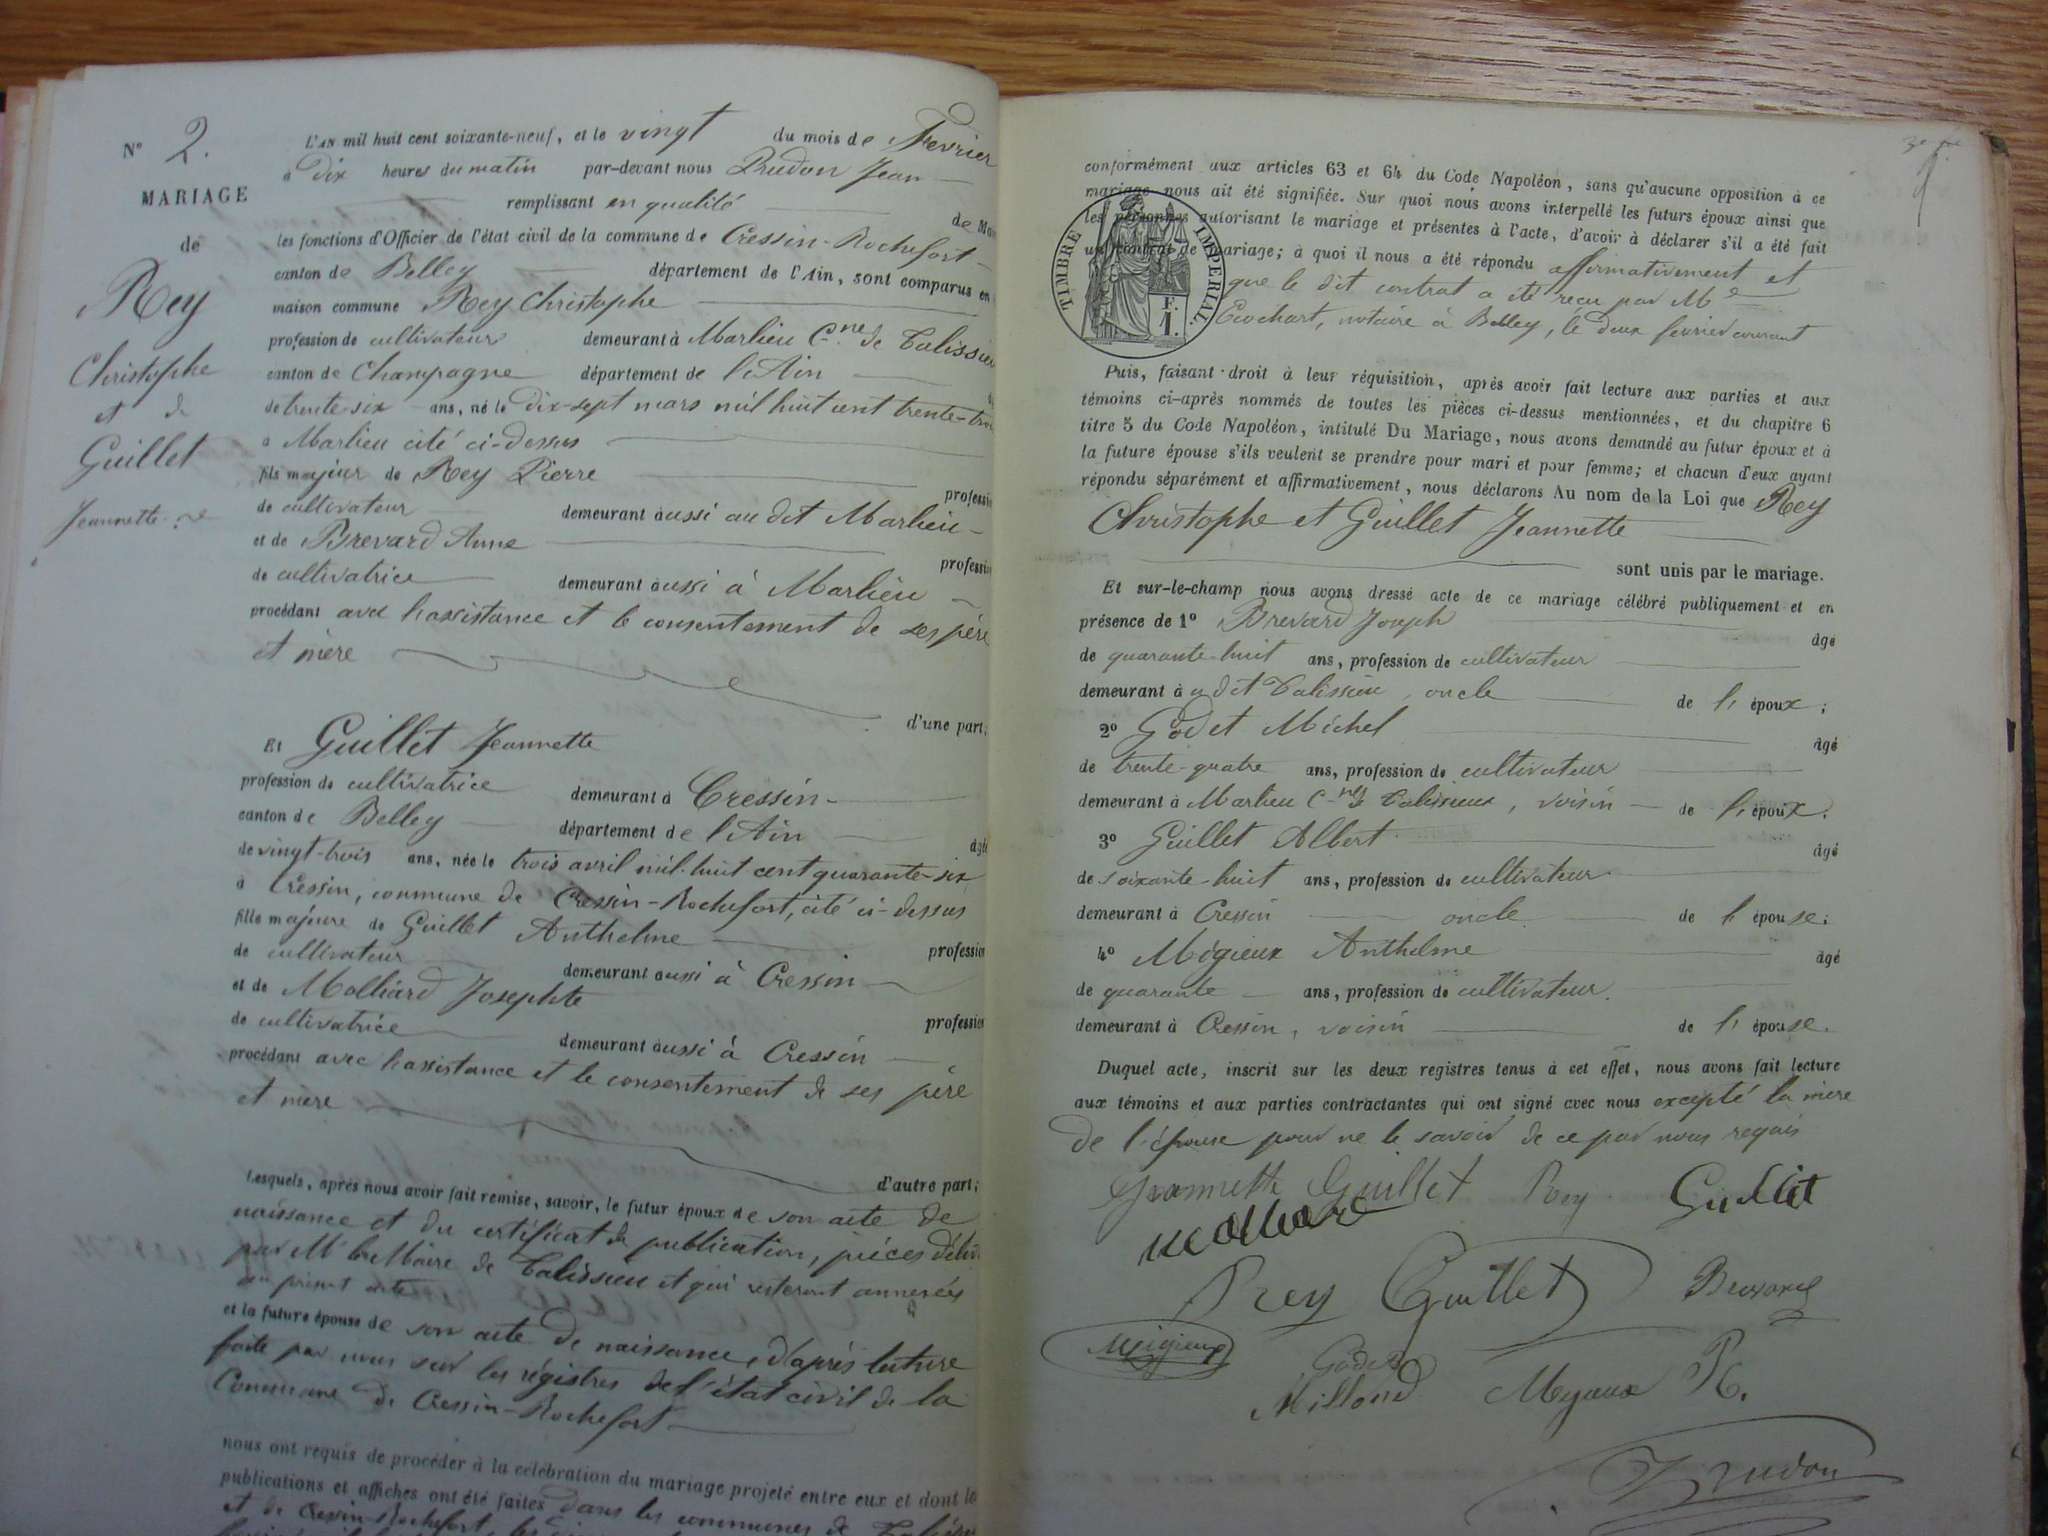 N° 2.
MARIAGE
de
Rey
Christophe
et de
Guillet
Jeannette
L'AN mil huit cent soixante-neuf, et le vingt du mois de Fevrier
à dix heures du matin par-devant nous Prudon Jean
remplissant en qualité de
les fonctions d'Officier de l'état civil de la commune de Cressin-Rochefort
canton de Belley département de l'Ain, sont comparus en
maison commune Rey Christophe
profession de cultivateur demeurant à Marlieu Cne de Talissieu
canton de Champagne département de l'Ain
de trente-six ans, né le dix-sept mars mil huit cent trente-trois
à Marlieu cité ci-dessus
fils majeur de Rey Pierre
profession
de cultivateur demeurant aussi au dit Marlieu
et de Brevard Anne
profession
de cultivatrice demeurant aussi à Marlieu
procédant avec l'assistance et le consentement de ses père
et mère
d'une part;
Et Guillet Jeannette
profession de cultivatrice demeurant à Cressin
canton de Belley département de l'Ain
âgé
de vingt-trois ans, née le trois avril mil huit cent quarante-six
à Cressin, commune de Cressin-Rochefort, cité ci-dessus
fille majeure de Guillet Anthelme
profession
de cultivateur demeurant aussi à Cressin
et de Molliard Josephte
profession
de cultivatrice demeurant aussi à Cressin
procédant avec l'assistance et le consentement de ses père
et mère
d'autre part;
Lesquels, après nous avoir fait remise, savoir, le futur époux de son acte de
naissance et du certificat de publication, pièces
par Mr le Maire de Talissieu et qui resteront annexées
au présent acte
et la future épouse de son acte de naissance, d'après lecture
faite par nous sur les régistres de l'état civil de la
Commune de Cressin-Rochefort
nous ont requis de procéder à la célébration du mariage projeté entre eux et dont les
publications et affiches ont été faites dans les communes de
et de Cressin-Rochefort, les
conformément aux articles 63 et 64 du Code Napoléon, sans qu'aucune opposition à ce
mariage nous ait été signifiée. Sur quoi nous avons interpellé les futurs époux ainsi que
les personnes autorisant le mariage et présentes à l'acte, d'avoir à déclarer s'il a été fait
un contrat de mariage; à quoi il nous a été répondu affirmativement et
que le dit contrat a été reçu par Me
notaire à Belley, le deux fevrier courant
TIMBRE IMPERIAL
F.
1.
Puis, faisant droit à leur réquisition, après avoir fait lecture aux parties et aux
témoins ci-après nommés de toutes les pièces ci-dessus mentionnées, et du chapitre 6
titre 5 du Code Napoléon, intitulé Du Mariage, nous avons demandé au futur époux et à
la future épouse s'ils veulent se prendre pour mari et pour femme; et chacun d'eux ayant
répondu séparément et affirmativement, nous déclarons Au nom de la Loi que Rey
Christophe et Guillet Jeannette
sont unis par le mariage.
Et sur-le-champ nous avons dressé acte de ce mariage célébré publiquement et en
présence de 1° Brevard Joseph
âgé
de quarante-huit ans, profession de cultivateur
demeurant à u dit Talissieu, oncle de l' époux;
2° Godet Michel
âgé
de trente-quatre ans, profession de cultivateur
demeurant à Marlieu Cne de Talissieu, voisin de l' époux.
3° Guillet Albert
âgé
de soixante-huit ans, profession de cultivateur
demeurant à Cressin oncle de l' épouse;
4° Mégieux Anthelme
âgé
de quarante ans, profession de cultivateur
demeurant à Cressin, voisin de l' épouse.
Duquel acte, inscrit sur les deux registres tenus à cet effet, nous avons fait lecture
aux témoins et aux parties contractantes qui ont signé avec nous excepté la mère
de l'épouse pour ne le savoir de ce par nous requis
Jeannette Guillet Rey Guillet
Rey Guillet Brevard
Godet
Milloud R.
Prudon